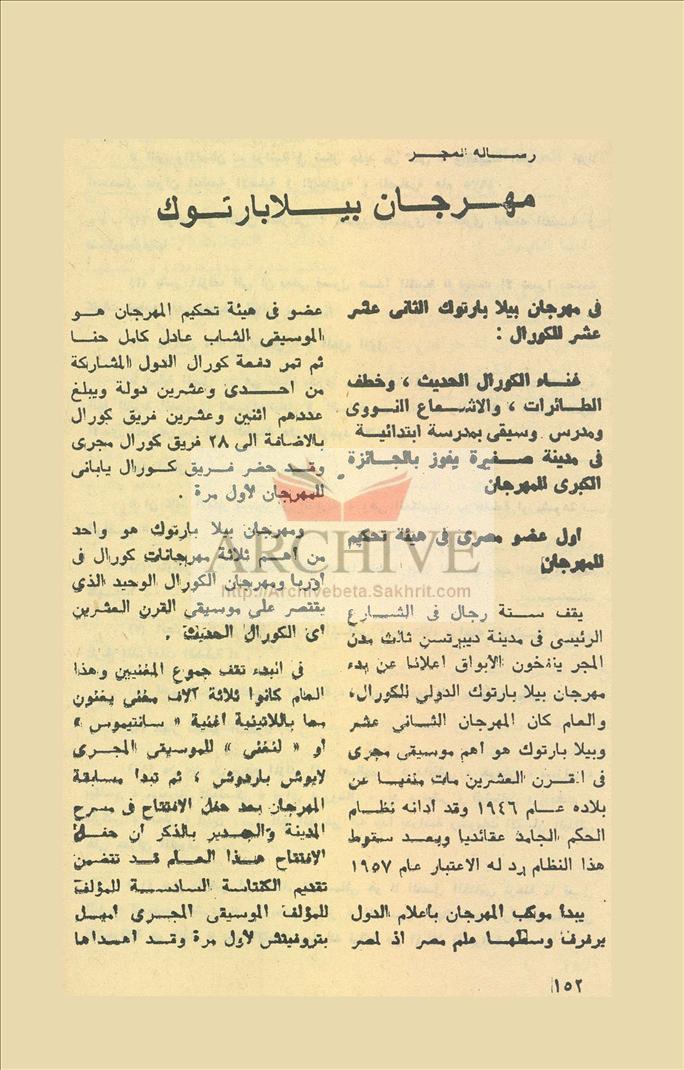 رساله المجر
مهرجان بيلابارتوك
فى مهرجان بيلا بارتوك الثانى عشر
عشر للكورال :
غناء الكورال الحديث ، وخطف
الطائرات ، والاشعاع النووى
ومدرس وسيقى بمدرسة ابتدائية
فى مدينة صغيرة يفوز بالجائزة
الكبرى للمهرجان
اول عضو مصرى فى هيئة تحكيم
للمهرجان
يقف ستة رجال فى الشارع
الرئيسى فى مدينة ديبرتسن ثالث مدن
المجر ينفخون الأبواق اعلانا عن بدء
مهرجان بيلا بارتوك الدولي للكورال،
والعام كان المهرجان الثانى عشر
وبيلا بارتوك هو أهم موسيقى مجرى
فى القرن العشرين مات منفيها عن
بلاده عام ١٩٤٦ وقد أدانه نظام
الحكم الجامد عقائديا وبعد سقوط
هذا النظام رد له الاعتبار عام ١٩٥٧
يبدأ موكب المهرجان بأعلام الدول
يرفرف وسطها علم مصر اذ لمصر
عضو فى هيئة تحكيم المهرجان هو
الموسيقى الشاب عادل كامل حنا
ثم تمر دفعة كورال الدول المشاركة
من احدى وعشرين دولة ويبلغ
عددهم اثنين وعشرين فريق كورال
بالاضافة الى ٢٨ فريق كورال مجرى
وقد حضر فريق كورال يابانى
للمهرجان لأول مرة .
ومهرجان بيلا بارتوك هو واحد
من أهم ثلاثة مهرجانات كورال فى
أوربا ومهرجان الكورال الوحيد الذي
يقتصر على موسيقى القرن العشرين
أى الكورال الحديث .
فى البدء تقف جموع المغنيين وهذا
العام كانوا ثلاثة آلاف مغنى يغنون
معا باللاتينية أغنية « سانتيموس »
أو « لنغنى » للموسيقى المجرى
لايوش باردوش ، ثم تبدأ مسابقة
المهرجان بعد حفل الافتتاح فى مسرح
المدينة والجدير بالذكر أن حفل
الافتتاح هذا العام قد تتضمن
تقديم الكنتاسة السادسة للمؤلف
للمؤلف الموسيقى المجرى اميل
بتروفيتش لأول مرة وقد أهداها
١٥٢
ARCHIVE
http://Archivebeta.Sakhrit.com